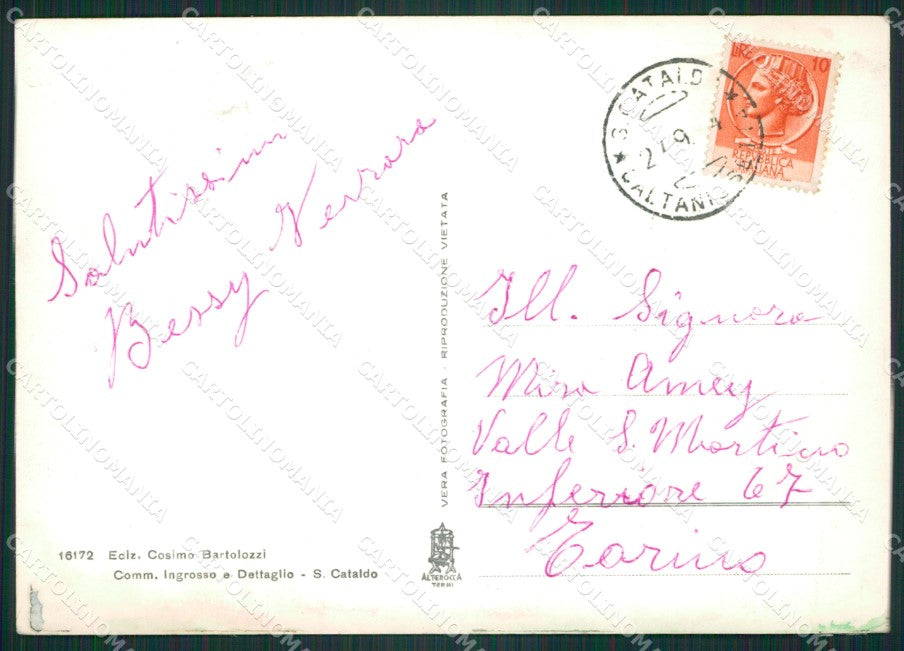 Salutissimi
Bessy Ferrara
16172 Ediz. Cosimo Bartolozzi
Comm. Ingrosso e Dettaglio - S. Cataldo
VERA FOTOGRAFIA - RIPRODUZIONE VIETATA
ALTEROCCA
TERNI
LIRE 10
POSTE
REPUBBLICA
ITALIANA
S. CATALDO
CALTANIS
Ill. Signora
Mira Amey
Valle S. Martino
Inferiore 67
Torino
CARTOLINOMANIA